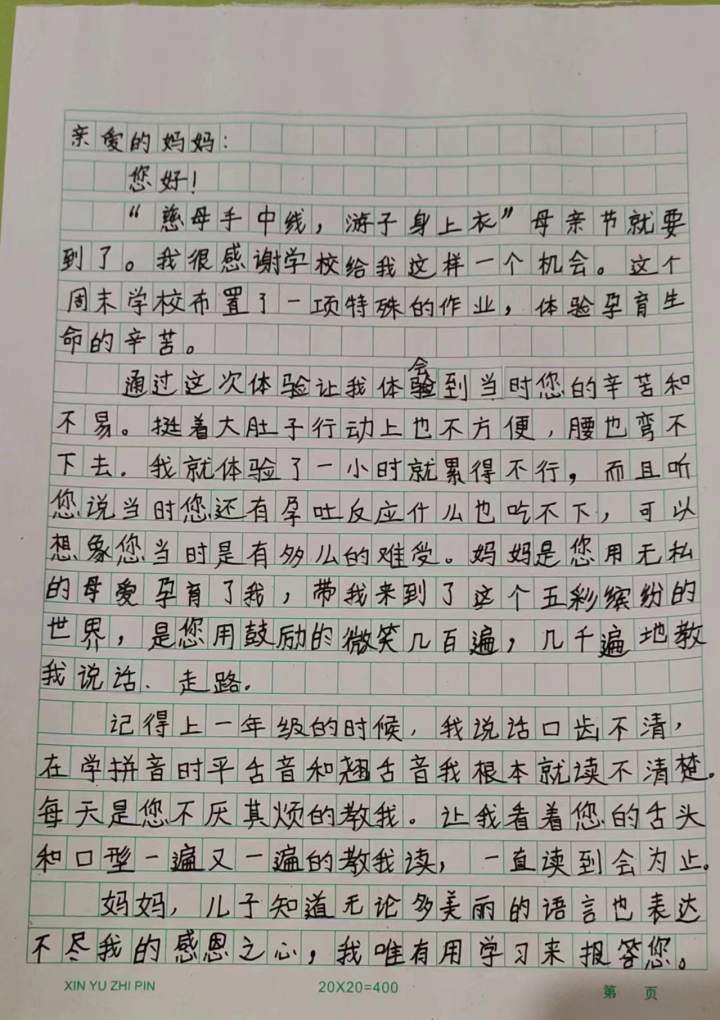 亲爱的妈妈：
您好！
“慈母手中线，游子身上衣”母亲节就要
到了。我很感谢学校给我这样一个机会。这个
周末学校布置了一项特殊的作业，体验孕育生
命的辛苦。
通过这次体验让我体会到当时您的辛苦和
不易。挺着大肚子行动上也不方便，腰也弯不
下去．我就体验了一小时就累得不行，而且听
您说当时您还有孕吐反应什么也吃不下，可以
想象您当时是有多么的难受。妈妈是您用无私
的母爱孕育了我，带我来到了这个五彩缤纷的
世界，是您用鼓励的微笑几百遍，几千遍地教
我说话、走路．
记得上一年级的时候，我说话口齿不清，
在学拼音时平舌音和翘舌音我根本就读不清楚。
每天是您不厌其烦的教我。让我看着您的舌头
和口型一遍又一遍的教我读，一直读到会为止。
妈妈，儿子知道无论多美丽的语言也表达
不尽我的感恩之心，我唯有用学习来报答您。
XIN YU ZHI PIN 20X20=400 第 页